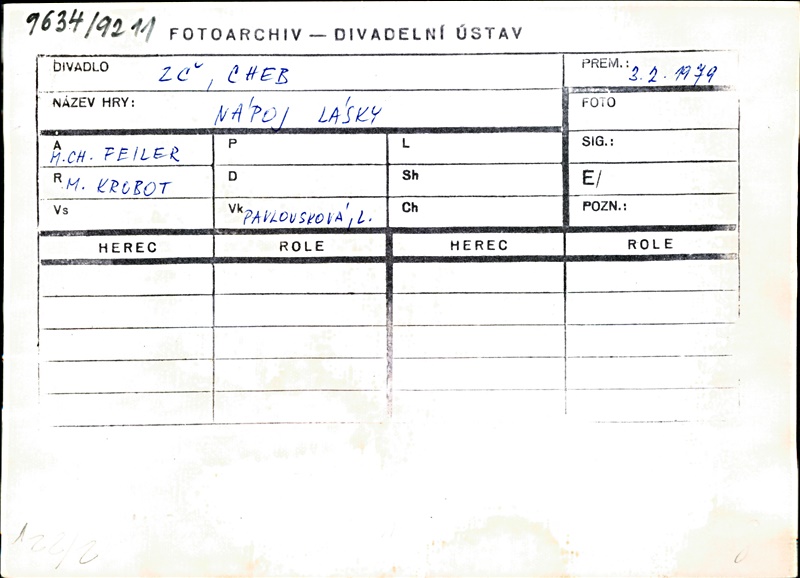 9634/9211 FOTOARCHIV — DIVADELNÍ ÚSTAV
DIVADLO ZČ, CHEB PREM.: 3.2.1979
NÁZEV HRY: NÁPOJ LÁSKY FOTO
A M.CH. FEILER P L SIG.:
R M. KROBOT D Sh E/
Vs Vk PAVLOUSKOVÁ, L. Ch POZN.:
HEREC ROLE HEREC ROLE